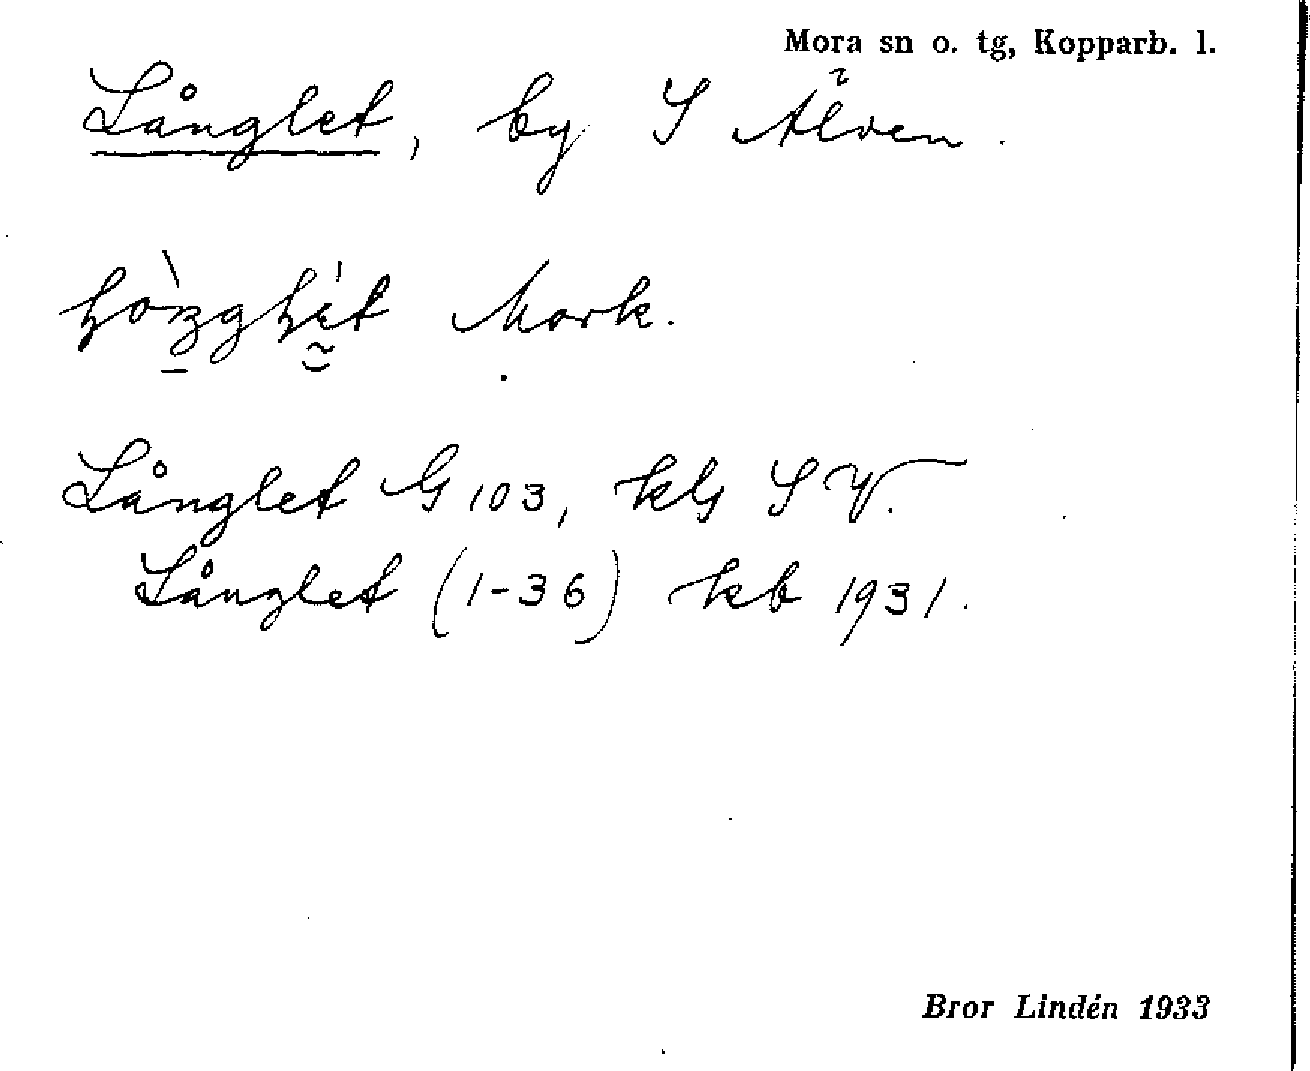 Mora sn o. tg, Kopparb. l.
Långlet, by S Älven.
Mork.
Långlet G 103, kG S V.
Långlet (1-36) kb 1931.
Bror Lindén 1933